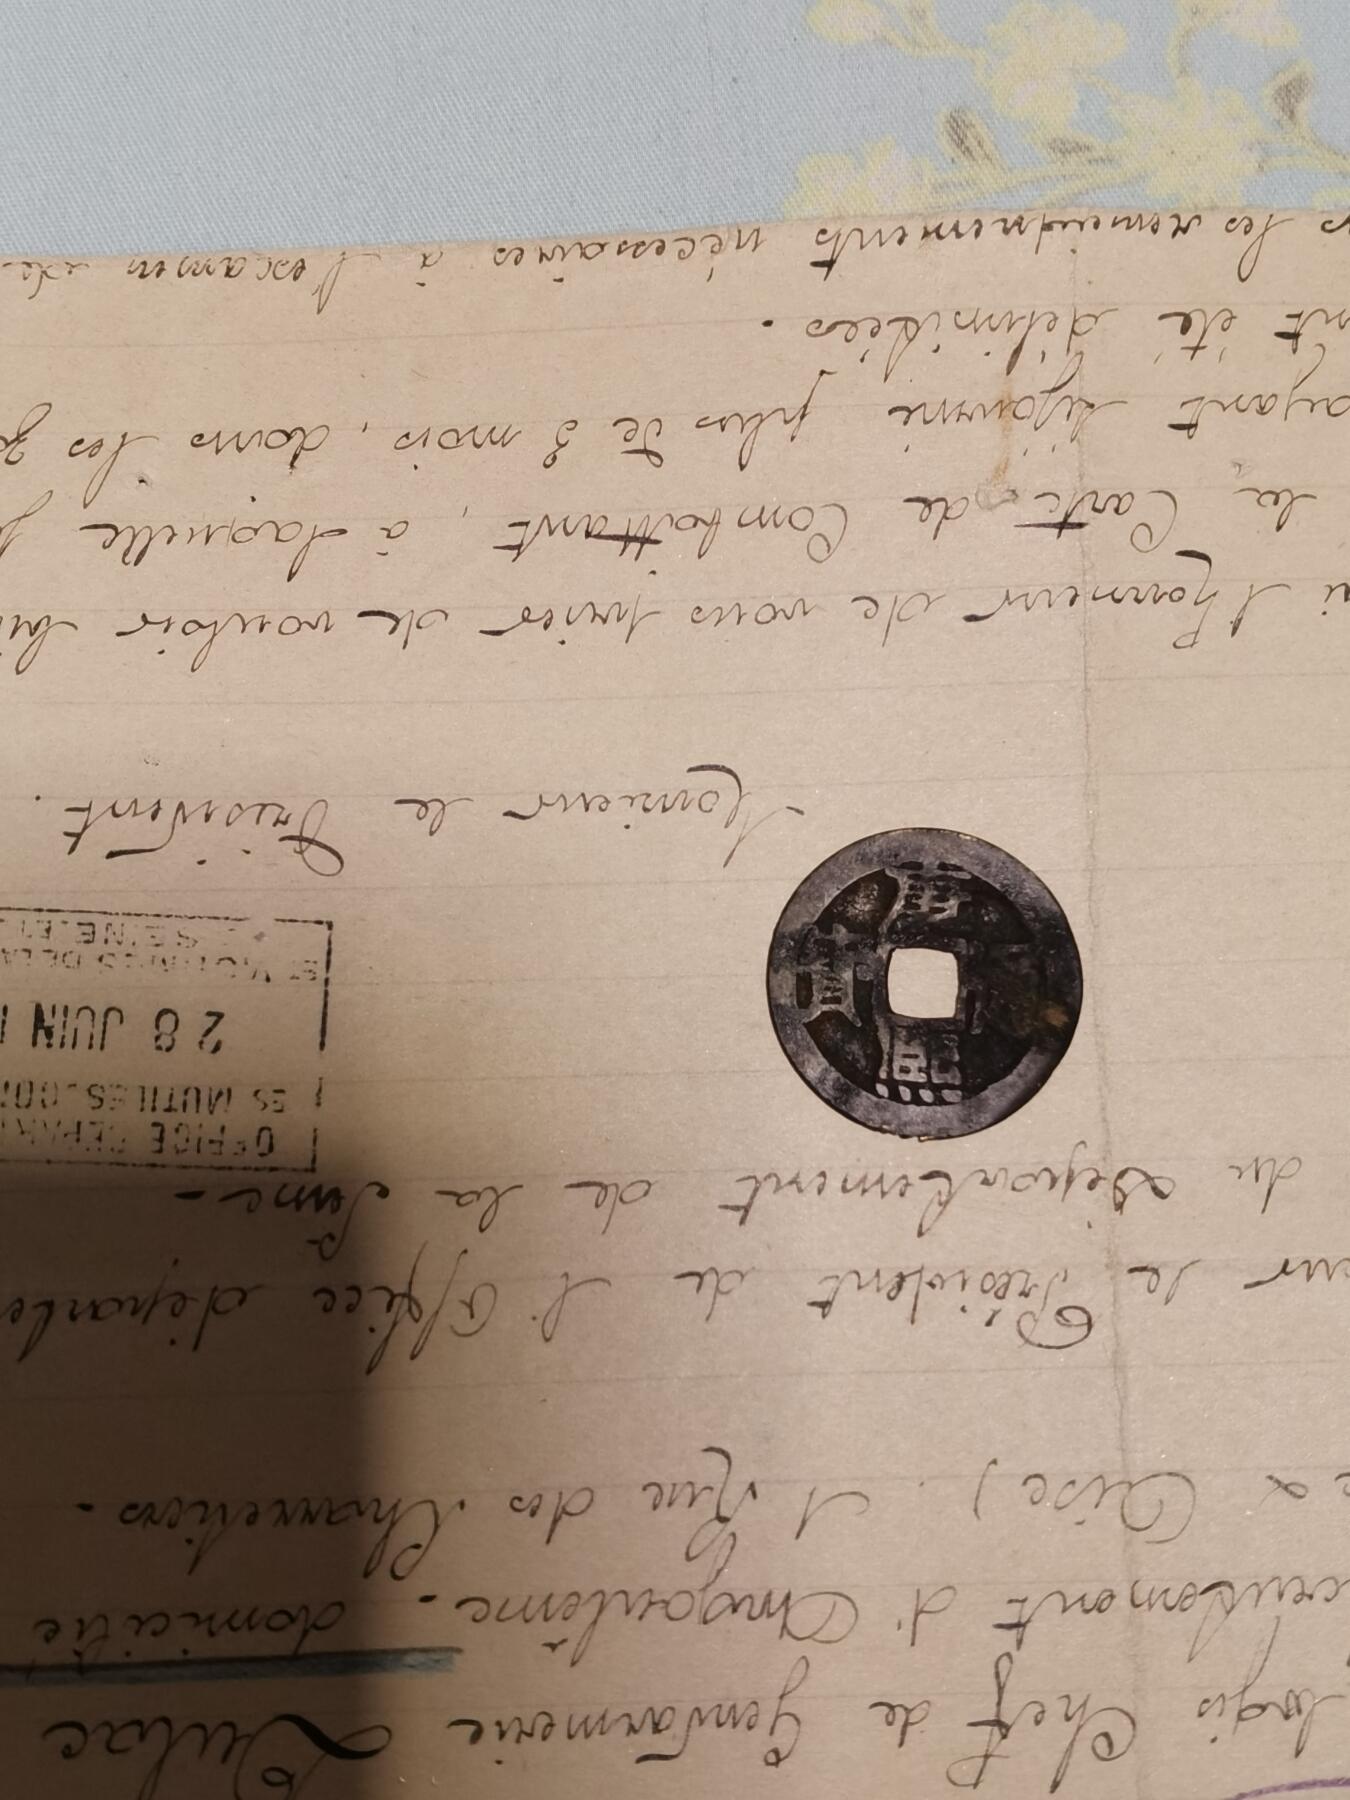 Logis Chef de Gendarmerie
recrutement d'Angoulême - domicilié
et Oise). 1 Rue des Charretiers.
le Président de l'Office
du Département de la Seine -
OFFICE DÉPART
ES MUTILÉS COM
28 JUIN 1
ET VICTIMES DE LA
SEINE ET
康熙通寶
Monsieur le Président.
ai l'honneur de vous prier de vouloir
la Carte de Combattant, à laquelle
ayant séjourné plus de 3 mois, dans les
nt été délimitées.
s les renseignements nécessaires à l'examen de